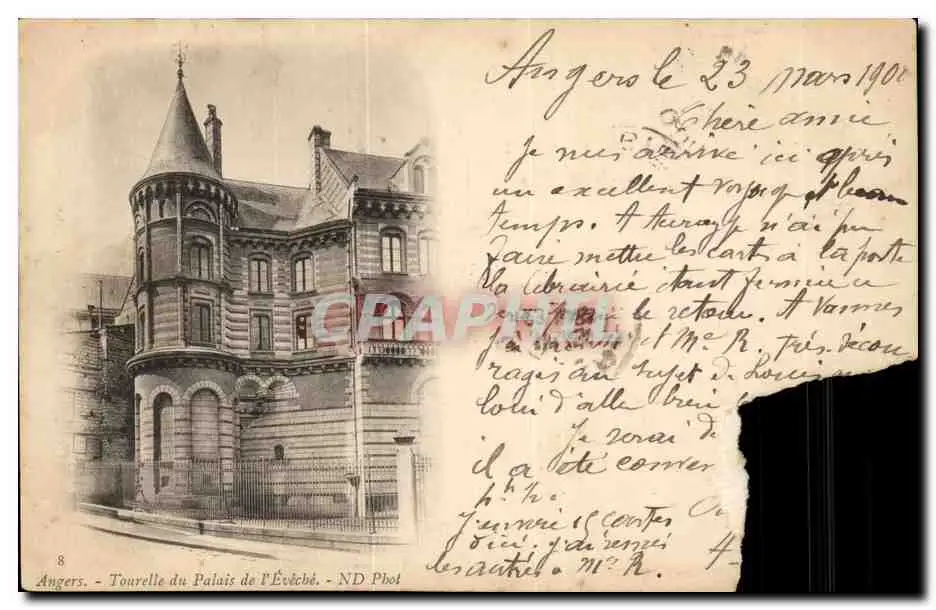 Angers le 23 mars 190
Chère amie
Je suis arrivé ici après
un excellent voyage et beau
temps. A Auray je n'ai pu
faire mettre les cartes à la poste
la librairie étant fermée
le retour. A Vannes
et Me R. très décou
ragés au sujet de Louis
loin d'aller bien
Je serai
il a été conver
J'envoie 15 cartes
d'ici. j'ai remis
les autres a Mr R.
CPAPHIL
8
Angers. - Tourelle du Palais de l'Évêché. - ND Phot